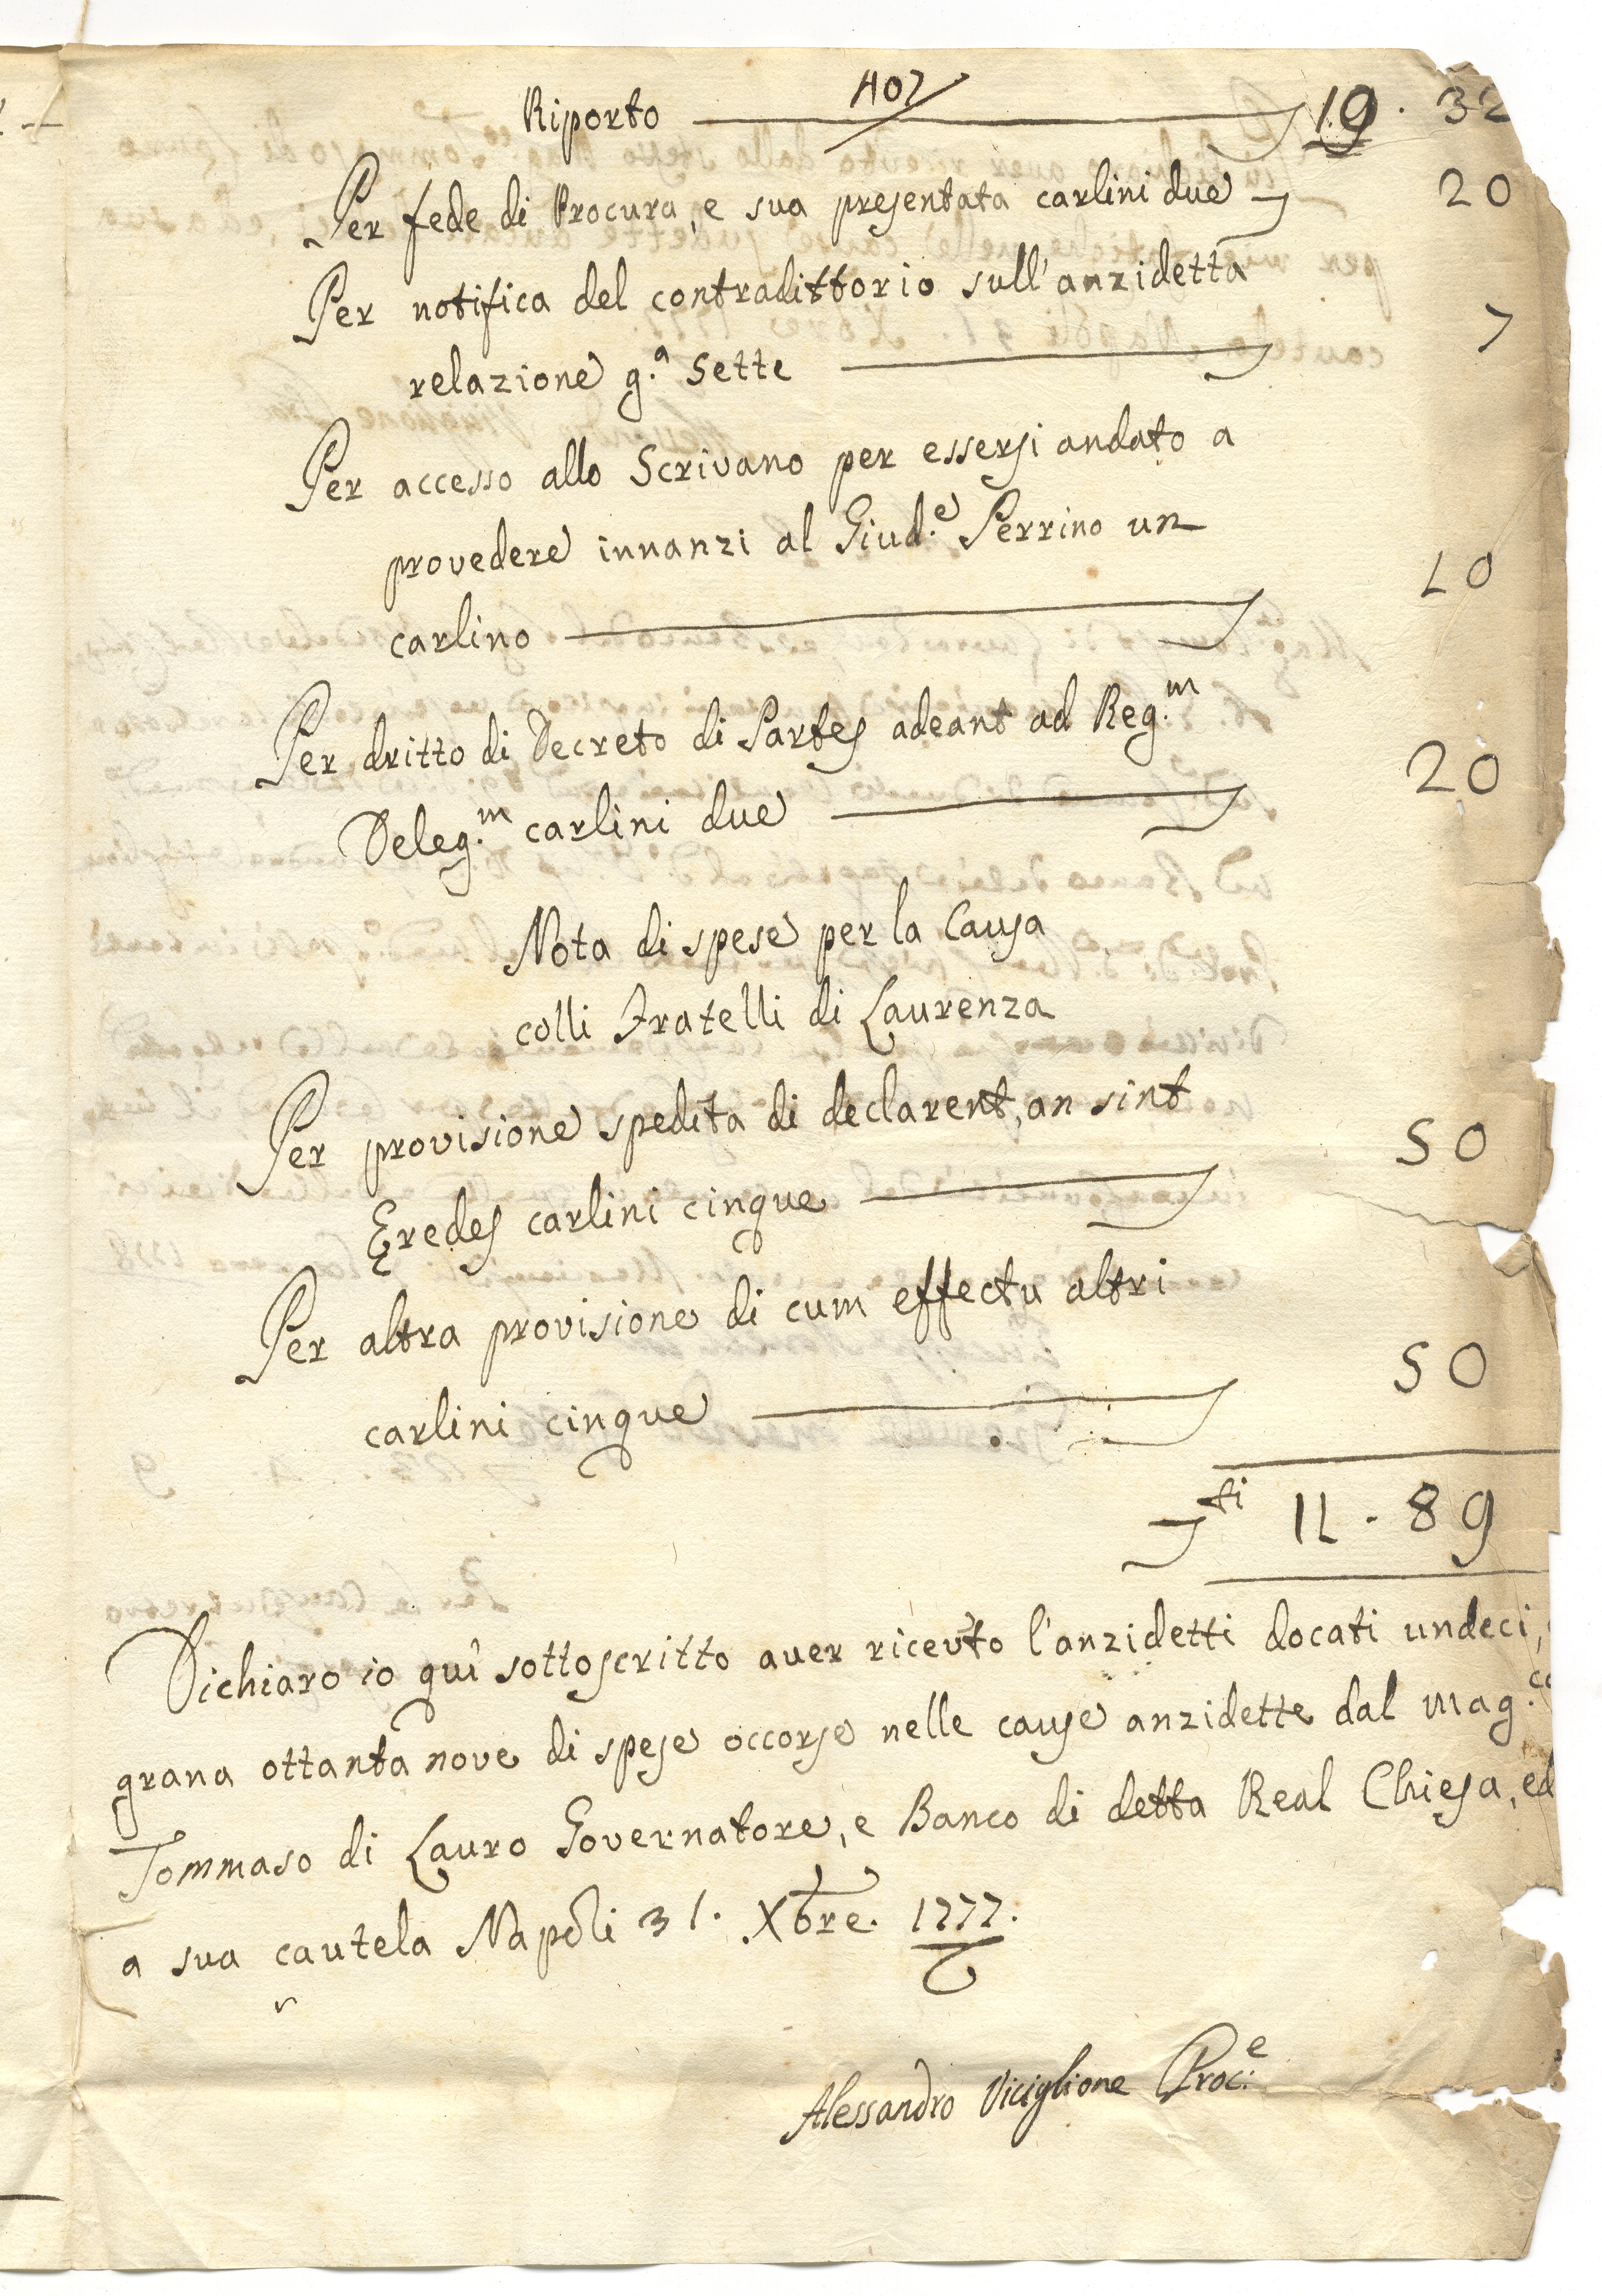 407
Riporto 19 . 32
Per fede di Procura, e sua presentata carlini due 20
Per notifica del contradittorio sull'anzidetta
relazione g.ᵃ Sette 7
Per accesso allo Scrivano per essersi andato a
provedere innanzi al Giud.ᵉ Perrino un
carlino 10
Per dritto di Decreto di Partes adeant ad Reg.ᵐ
Deleg.ᵐ carlini due 20
Nota di spese per la Causa
colli Fratelli di Laurenza
Per provisione spedita di declarent, an sint
Eredes carlini cinque 50
Per altra provisione di cum effectu altri
carlini cinque 50
ti 11 . 89
Dichiaro io quì sottoscritto aver ricevto l'anzidetti docati undeci,
grana ottanta nove di spese occorse nelle cause anzidette dal Mag.ᶜᵒ
Tommaso di Lauro Governatore, e Banco di detta Real Chiesa, ed
a sua cautela Napoli 31. Xbre. 1777.
Alessandro Viciglione Proc.ᵉ